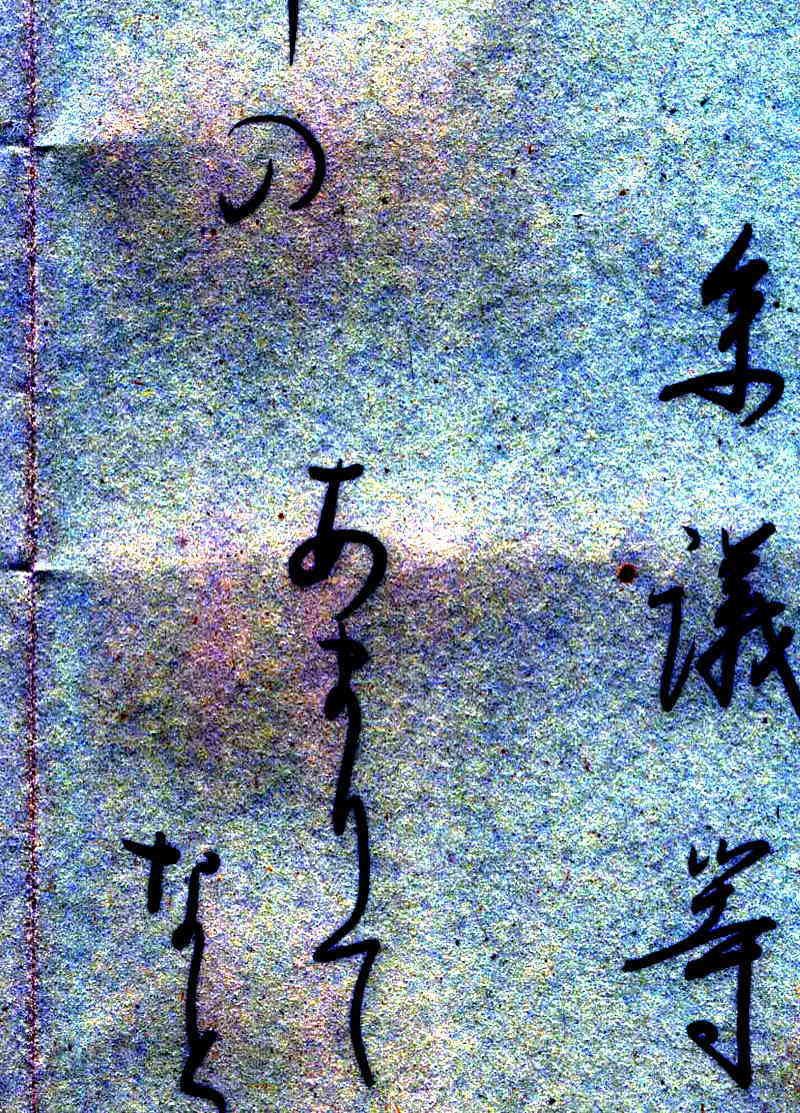 参議等
の
あまりて
なと